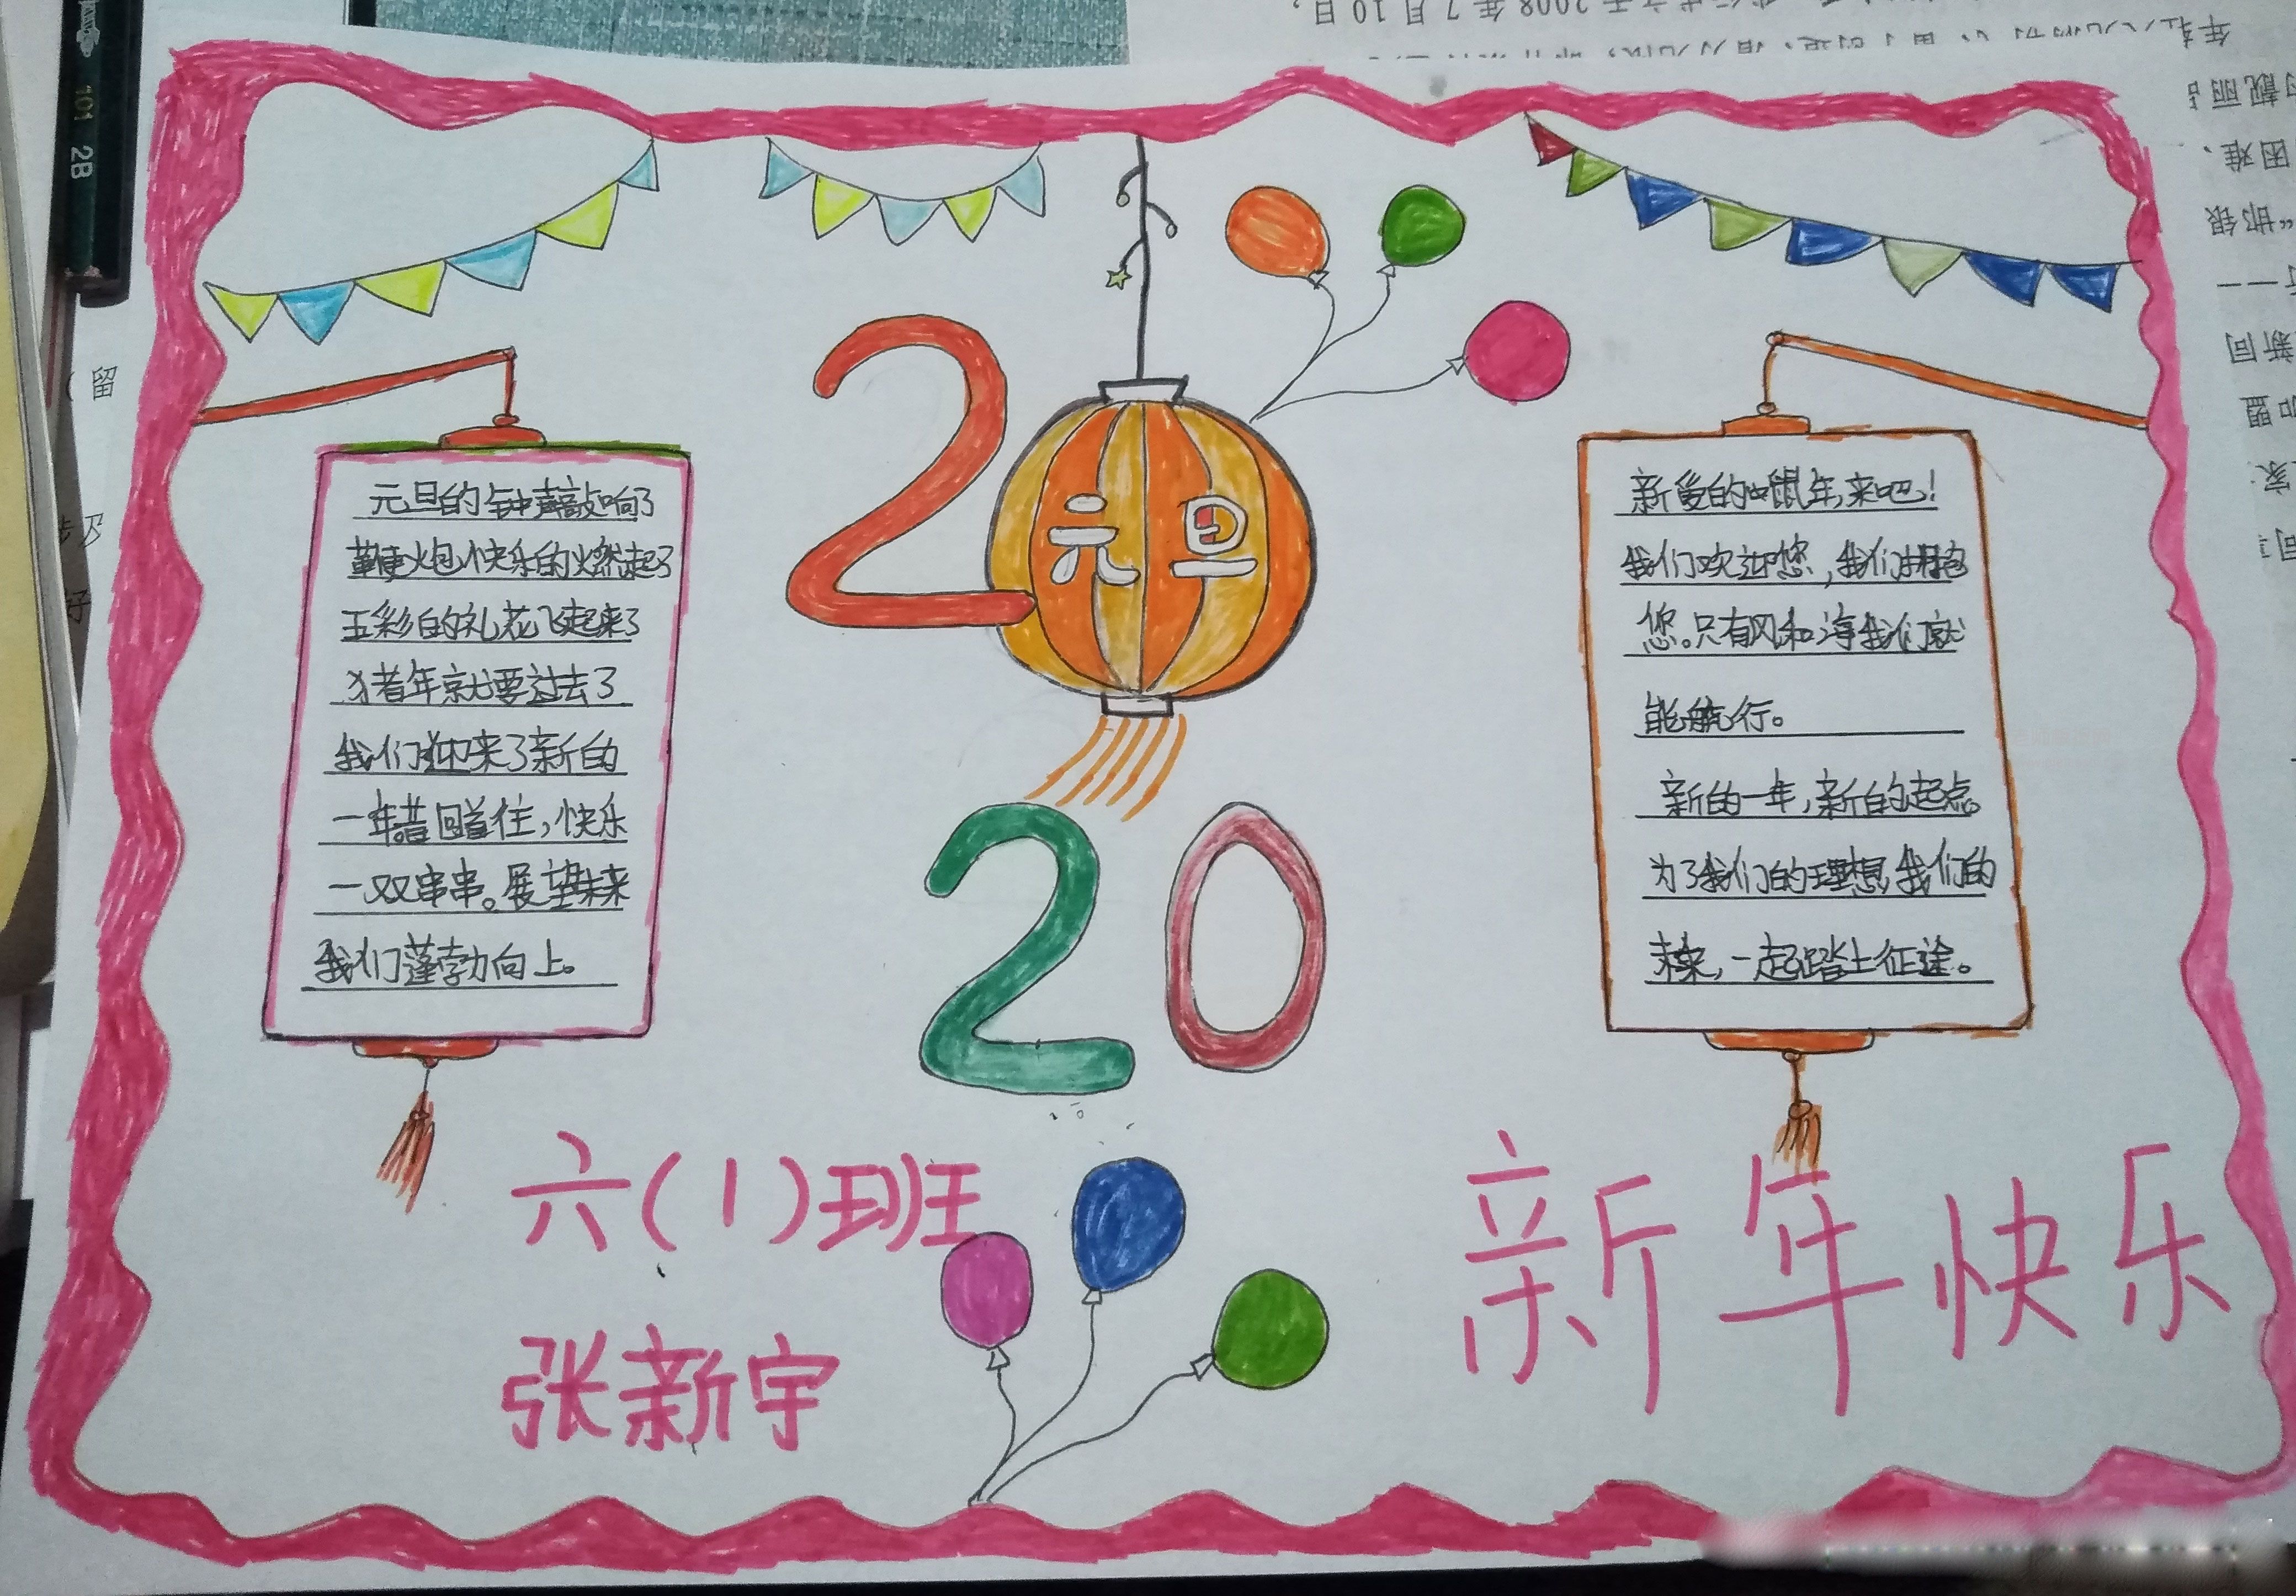 元旦的钟声敲响了
鞭炮快乐的燃起了
五彩的礼花飞起来了
猪年就要过去了
我们迎来了新的
一年。昔回首往，快乐
一双串串。展望未来
我们蓬勃向上。
2
元旦
20
新爱的鼠年，来吧！
我们欢迎您，我们拥抱
您。只有风和海我们就
能航行。
新的一年，新的起点。
为了我们的理想，我们的
未来，一起踏上征途。
六(1)班
张新宇
新年快乐
101 2B
留
2008年7月10日，
困难、
新同
加盟
家